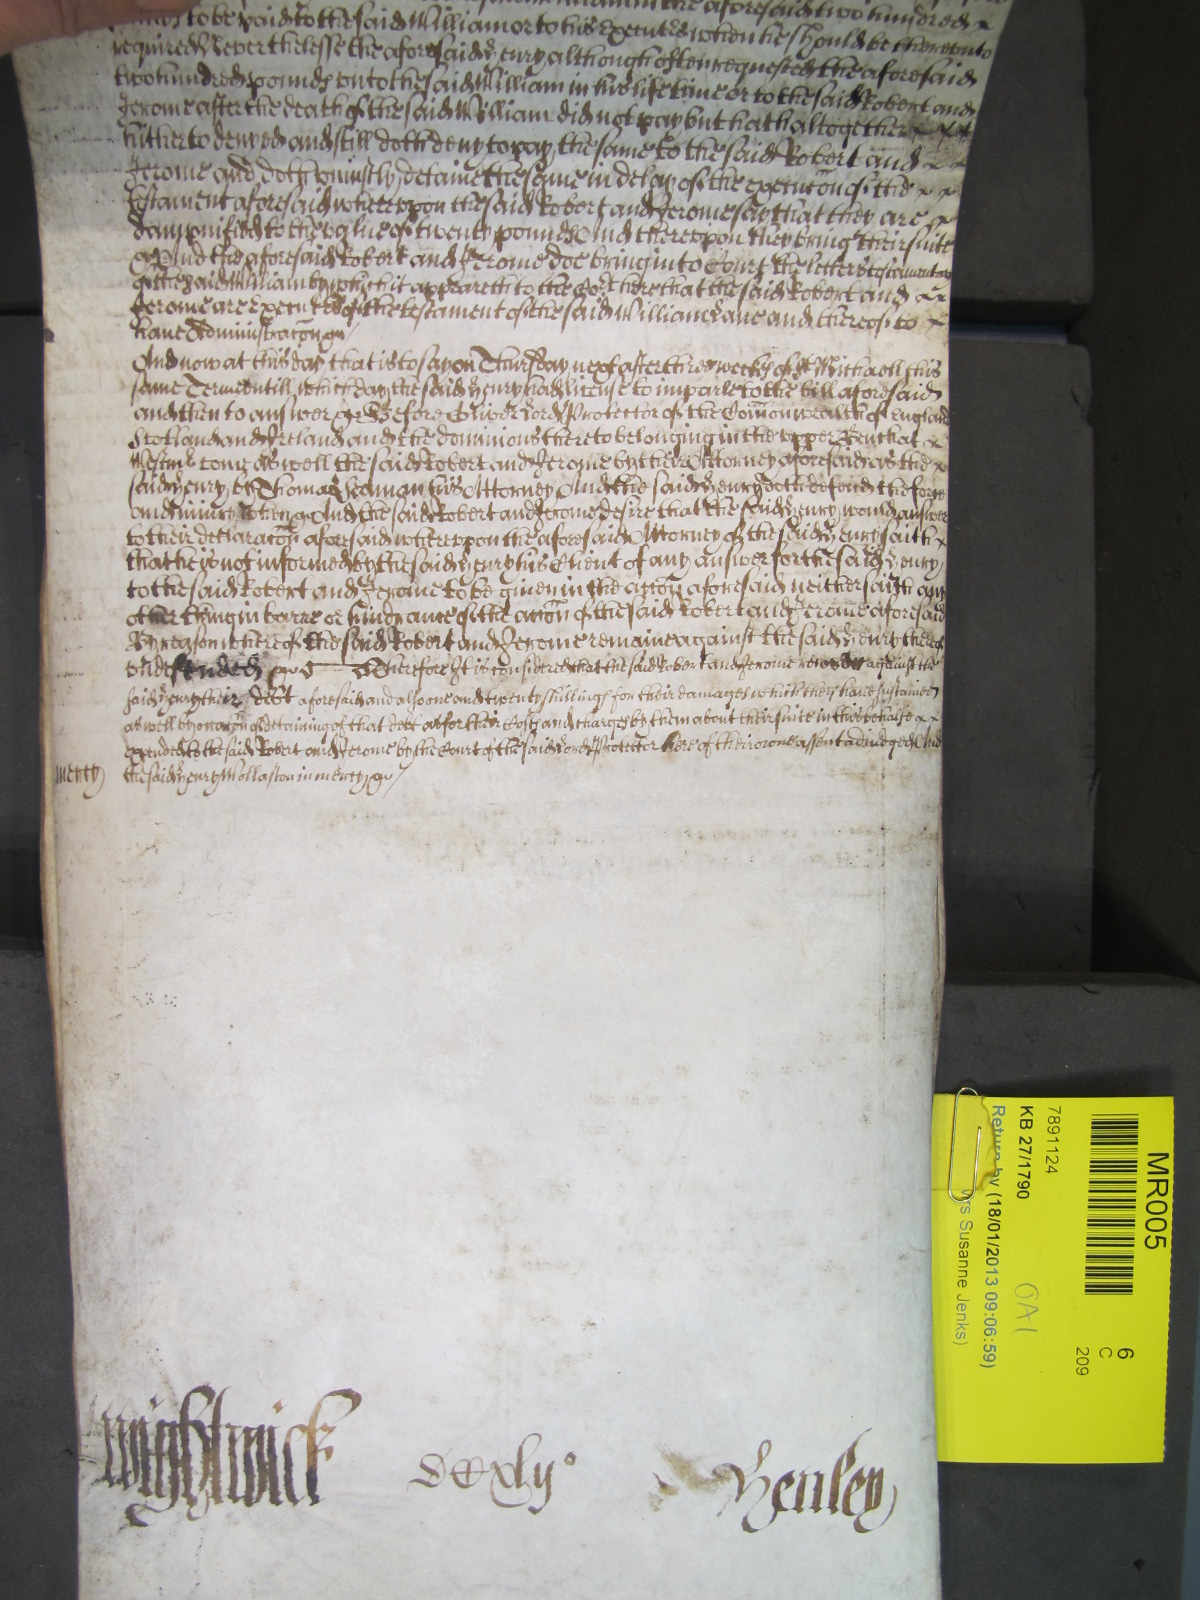 the aforesaid two hundred
to be paid to the said William or to his Executors when he should be thereunto
required Neverthelesse the aforesaid Henry although often requested the aforesaid
two hundred pounds unto the said William in his life time or to the said Robert and
Jerome after the death of the said William did not pay but hath altogether
hitherto denyed and still doth deny to pay the same to the said Robert and
Jerome and doth uniustly detaine the same in delay of the execucon of the
testament aforesaid whereupon the said Robert and Jerome say that they are
dampnified to the value of twenty pounds And thereupon they bring their suite
&c And the aforesaid Robert and Jerome doe bring into Court the letters testamentary
of the said William by which it appeareth to the Court here that the said Robert and
Jerome are Executors of the testament of the said William Lane and thereof to
have Administracon &c
And now at this day that is to say on Thursday next after three weekes of St Michaell this
same Terme untill which day the said Henry had license to imparle to the bill aforesaid
and then to answer &c Before Oliver Lord Protector of the Comon wealth of England
Scotland and Ireland and the dominions thereto belonging in the upper Bench at
Westmr come as well the said Robert and Jerome by their Attorney aforesaid as the
said Henry by Thomas Seaman his Attorney And the said Henry doth defend the force
and iniury when &c And the said Robert and Jerome desire that the said Henry would answer
to their declaracon aforesaid whereupon the aforesaid Attorney of the said Henry saith
that he is not informed by the said Henry his Client of any answer for the said Henry
to the said Robert and Jerome to be given in the accon aforesaid neither saith any
other thing in barre or hindrance of the accon of the said Robert and Jerome aforesaid
By reason whereof the said Robert and Jerome remaine against the said Henry therof
undefended &c Therefore It is considered that the said Robert and Jerome recover against the
said Henry their debt aforesaid and also one and twenty shillings for their damages which they have sustained
as well by occacon of detaining of that debt as for their Costs and charges by them about their suite in this behalfe
expended to the said Robert and Jerome by the Court of the said Lord Protector here of their owne assent adiudged And
mercy the said Henry Wollaston in mercy &c
Wightwick DCCxlij° Henley
MR005
6
C
209
7891124
KB 27/1790
OA1
Return by (18/01/2013 09:06:59)
Mrs Susanne Jenks)